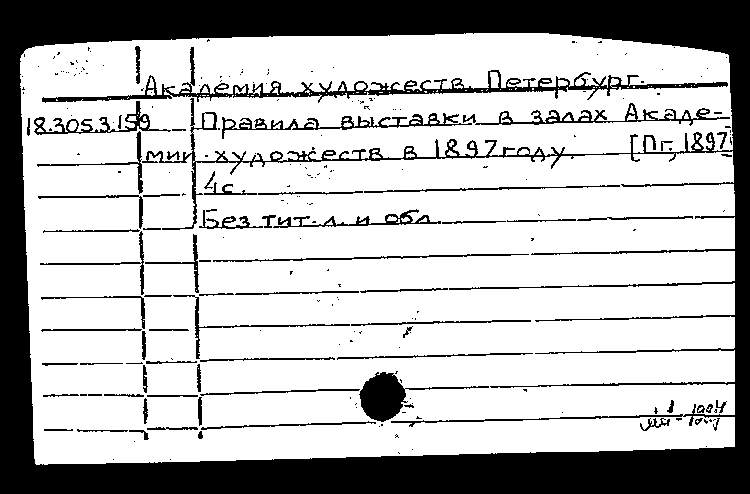 Академия художеств. Петербург.
18.305.3.159 Правила выставки в залах Акаде-
мии художеств в 1897 году. [Пг, 1897
4 с.
Без тит. л. и обл.